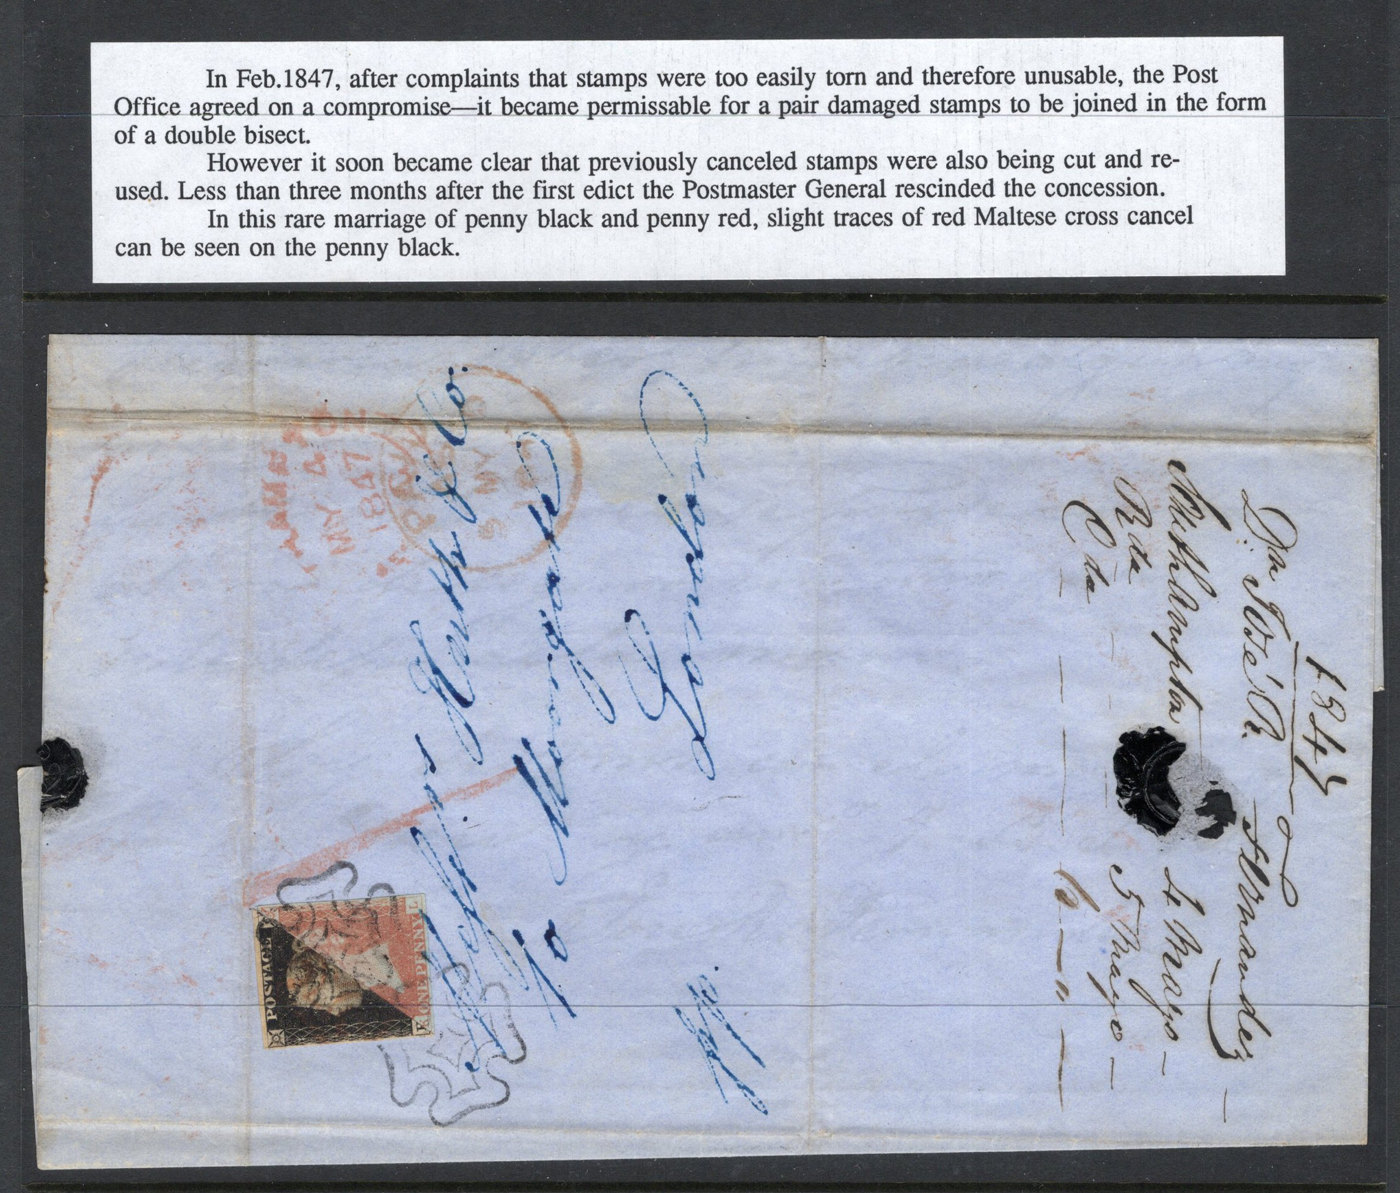 In Feb.1847, after complaints that stamps were too easily torn and therefore unusable, the Post
Office agreed on a compromise—it became permissable for a pair damaged stamps to be joined in the form
of a double bisect.
However it soon became clear that previously canceled stamps were also being cut and re-
used. Less than three months after the first edict the Postmaster General rescinded the concession.
In this rare marriage of penny black and penny red, slight traces of red Maltese cross cancel
can be seen on the penny black.
MY 4
1847
MY
& Co.
10 Moorgate
London
POSTAGE
ONE PENNY
L
1847
Southampton 4 Mayo
Rda 5 Mayo
Cda